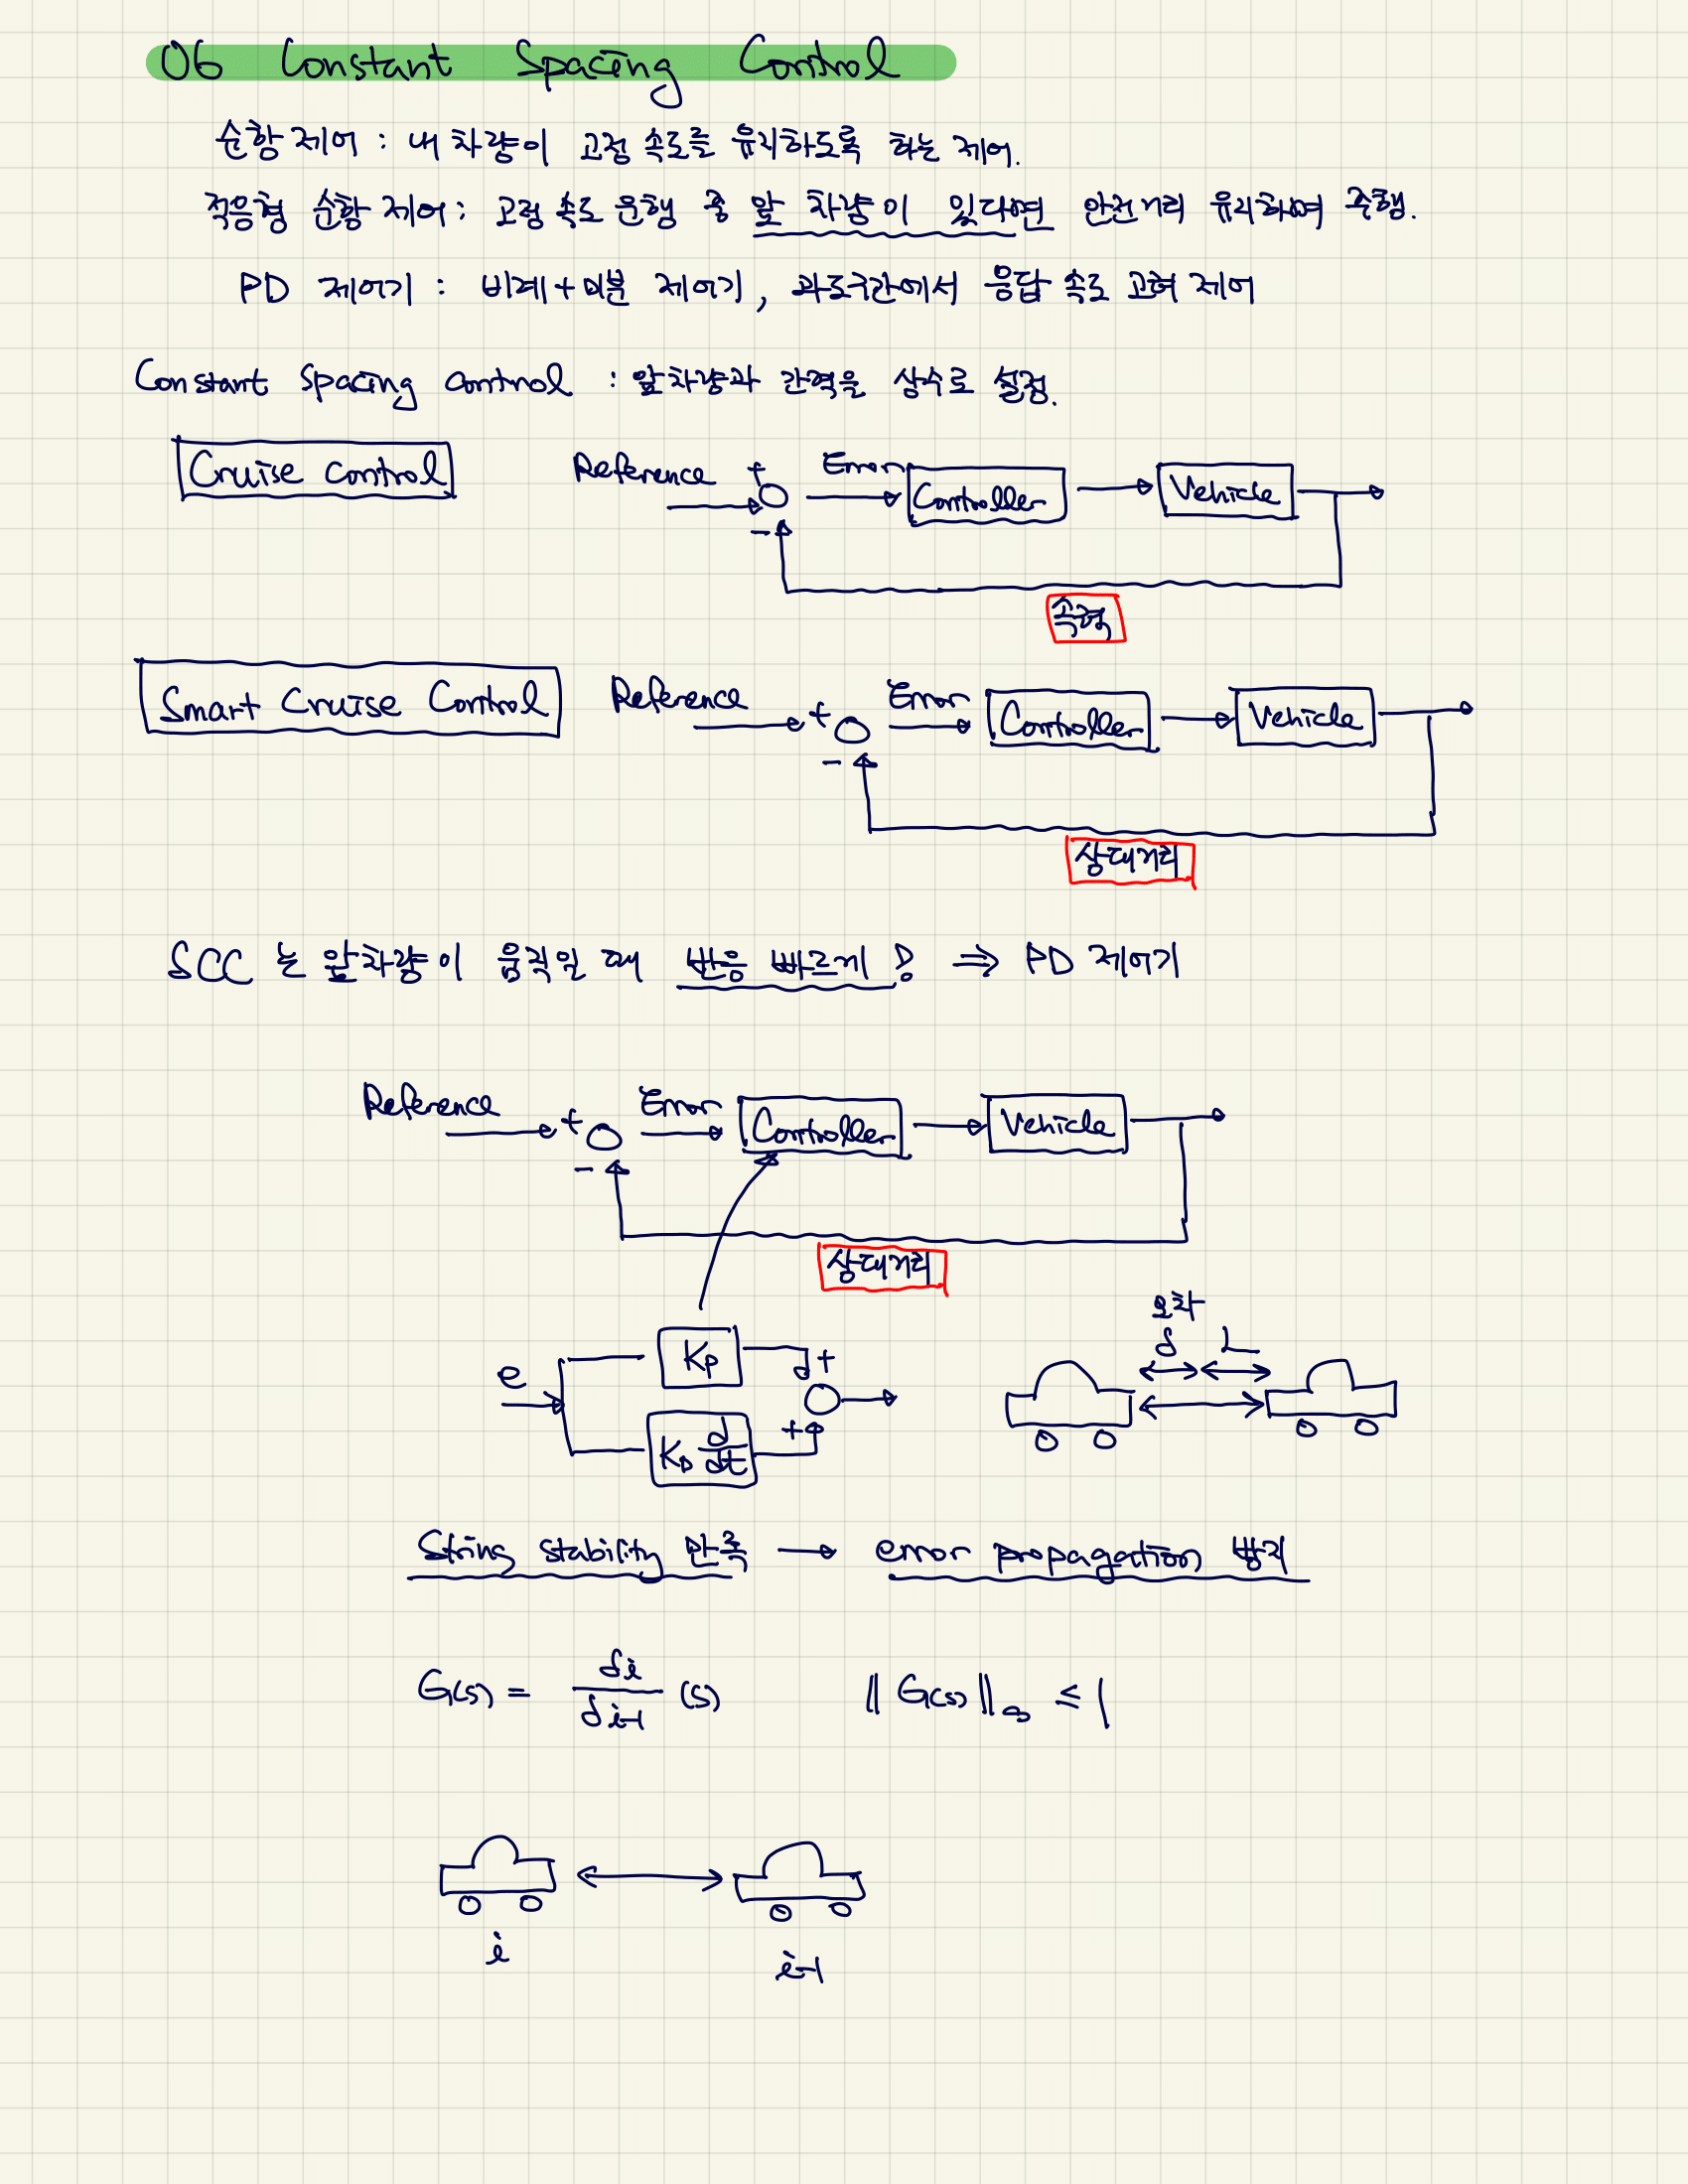 06 Constant Spacing Control
순항 제어 : 내 차량이 고정 속도를 유지하도록 하는 제어.
적응형 순항 제어 : 고정 속도 운행 중 앞 차량이 있다면 안전거리 유지하며 주행.
PD 제어기 : 비례+미분 제어기, 과도구간에서 응답 속도 고려 제어
Constant Spacing Control : 앞차량과 간격을 상수로 설정.
Cruise Control
Reference + Error Controller Vehicle
-
속력
Smart Cruise Control
Reference + Error Controller Vehicle
-
상대거리
SCC 는 앞차량이 움직일 때 반응 빠르게! ⇒ PD 제어기
Reference + Error Controller Vehicle
-
상대거리
오차
δ L
e Kp +
K_D d/dt +
String stability 만족 → error propagation 방지
G(s) = δi/δi-1 (s) ‖G(s)‖∞ ≤ 1
i i-1